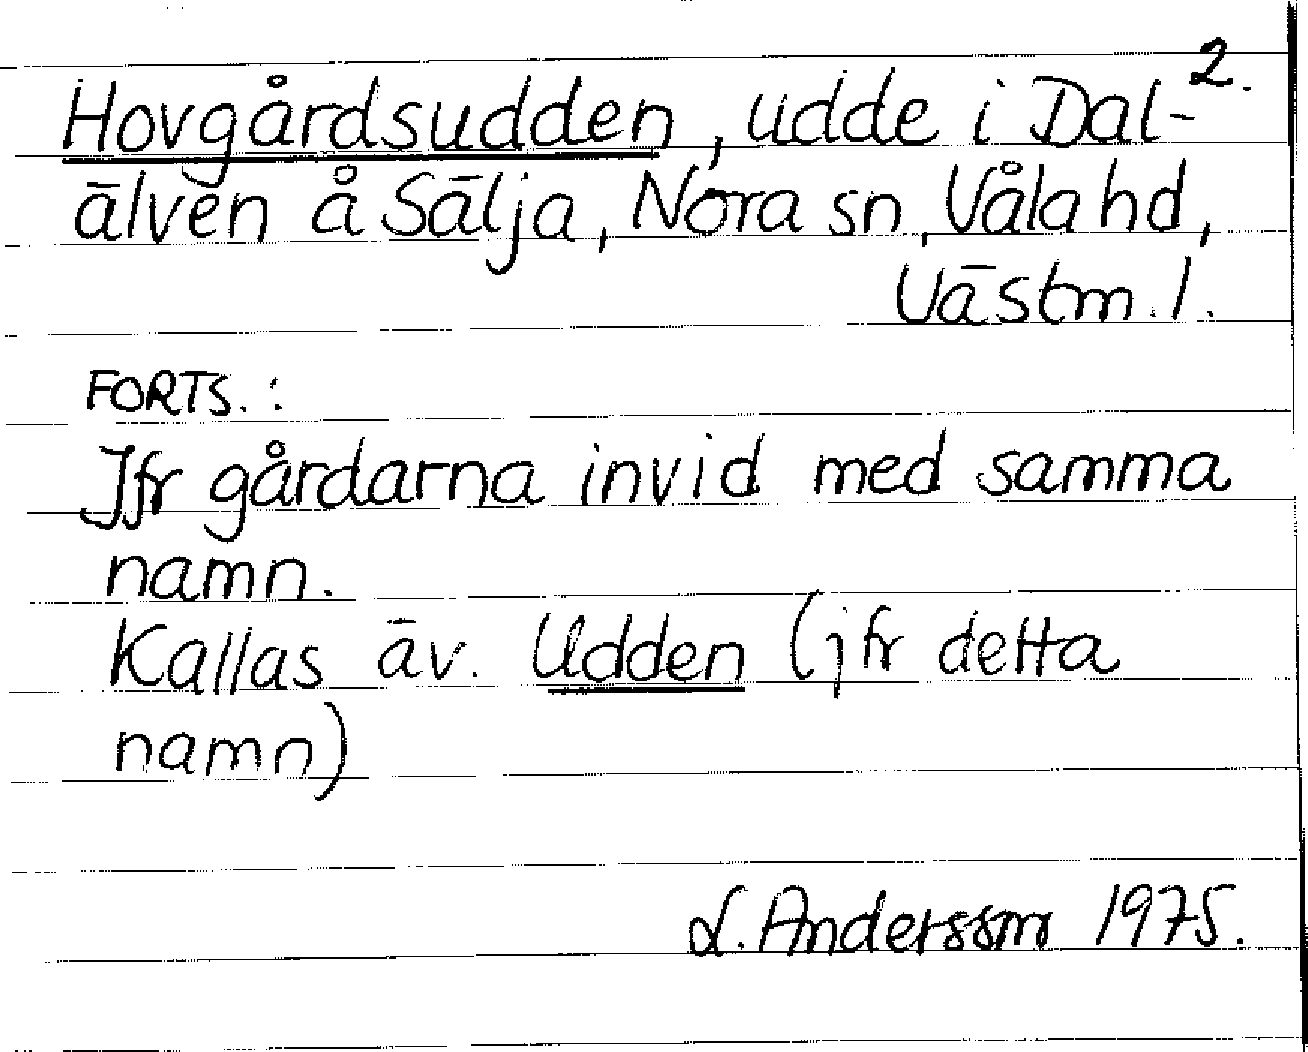 2.
Hovgårdsudden, udde i Dal-
älven å Sälja, Nora sn, Våla hd,
Västm. l.
FORTS.:
Jfr gårdarna invid med samma
namn.
Kallas äv. Udden (jfr detta
namn)
L. Andersson 1975.